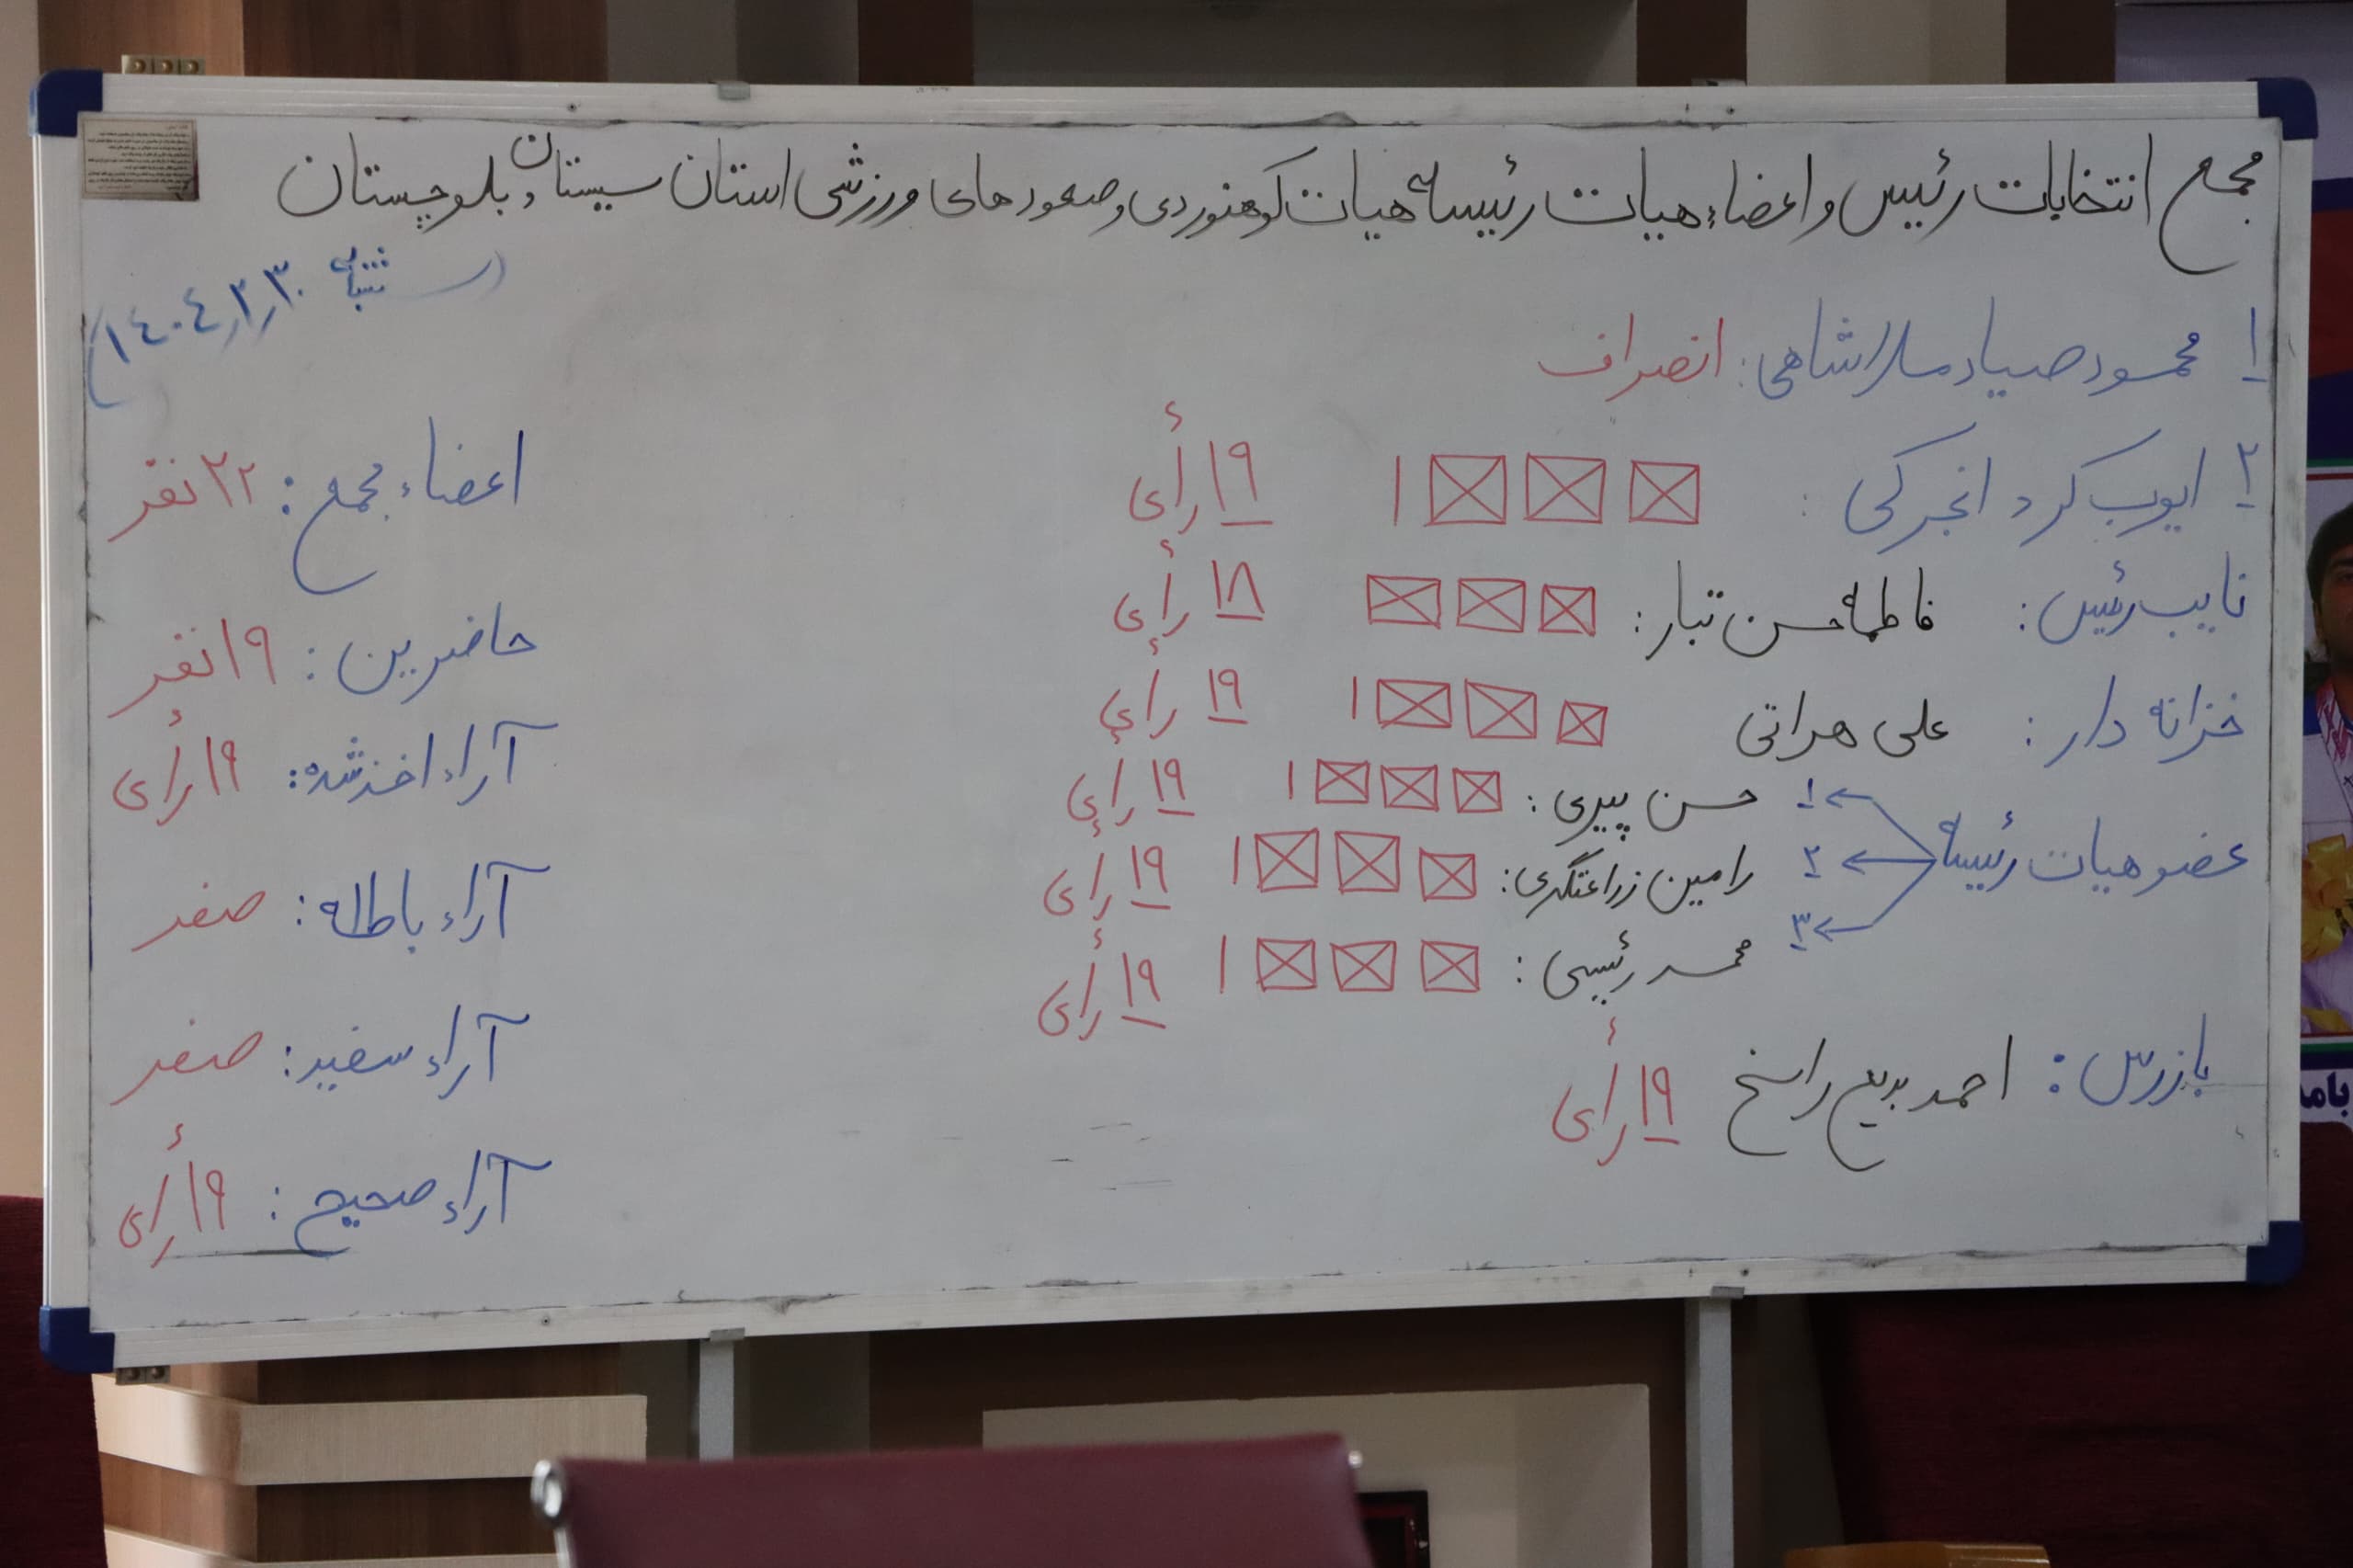 مجمع انتخابات رئیس و اعضاء هیات رئیسه هیات کوهنوردی و صعودهای ورزشی استان سیستان و بلوچستان
۱ محمود صیاد ملاشاهی: انصراف
۲ ایوب کرد انجرکی : ۱ ۱۹ رأی
نایب رئیس: فاطمه حسن تبار: ۱۸ رأی
خزانه دار: علی هراتی ۱ ۱۹ رأی
عضو هیات رئیسه
۱ حسن پیری: ۱ ۱۹ رأی
۲ رامین زراعتگری: ۱ ۱۹ رأی
۳ محمد رئیسی: ۱ ۱۹ رأی
بازرس: احمد بدیع راسخ ۱۹ رأی
شنبه ۱۴۰۴
اعضاء مجمع: ۲۲ نفر
حاضرین: ۱۹ نفر
آراء اخذ شده: ۱۹ رأی
آراء باطله: صفر
آراء سفید: صفر
آراء صحیح: ۱۹ رأی
بامد